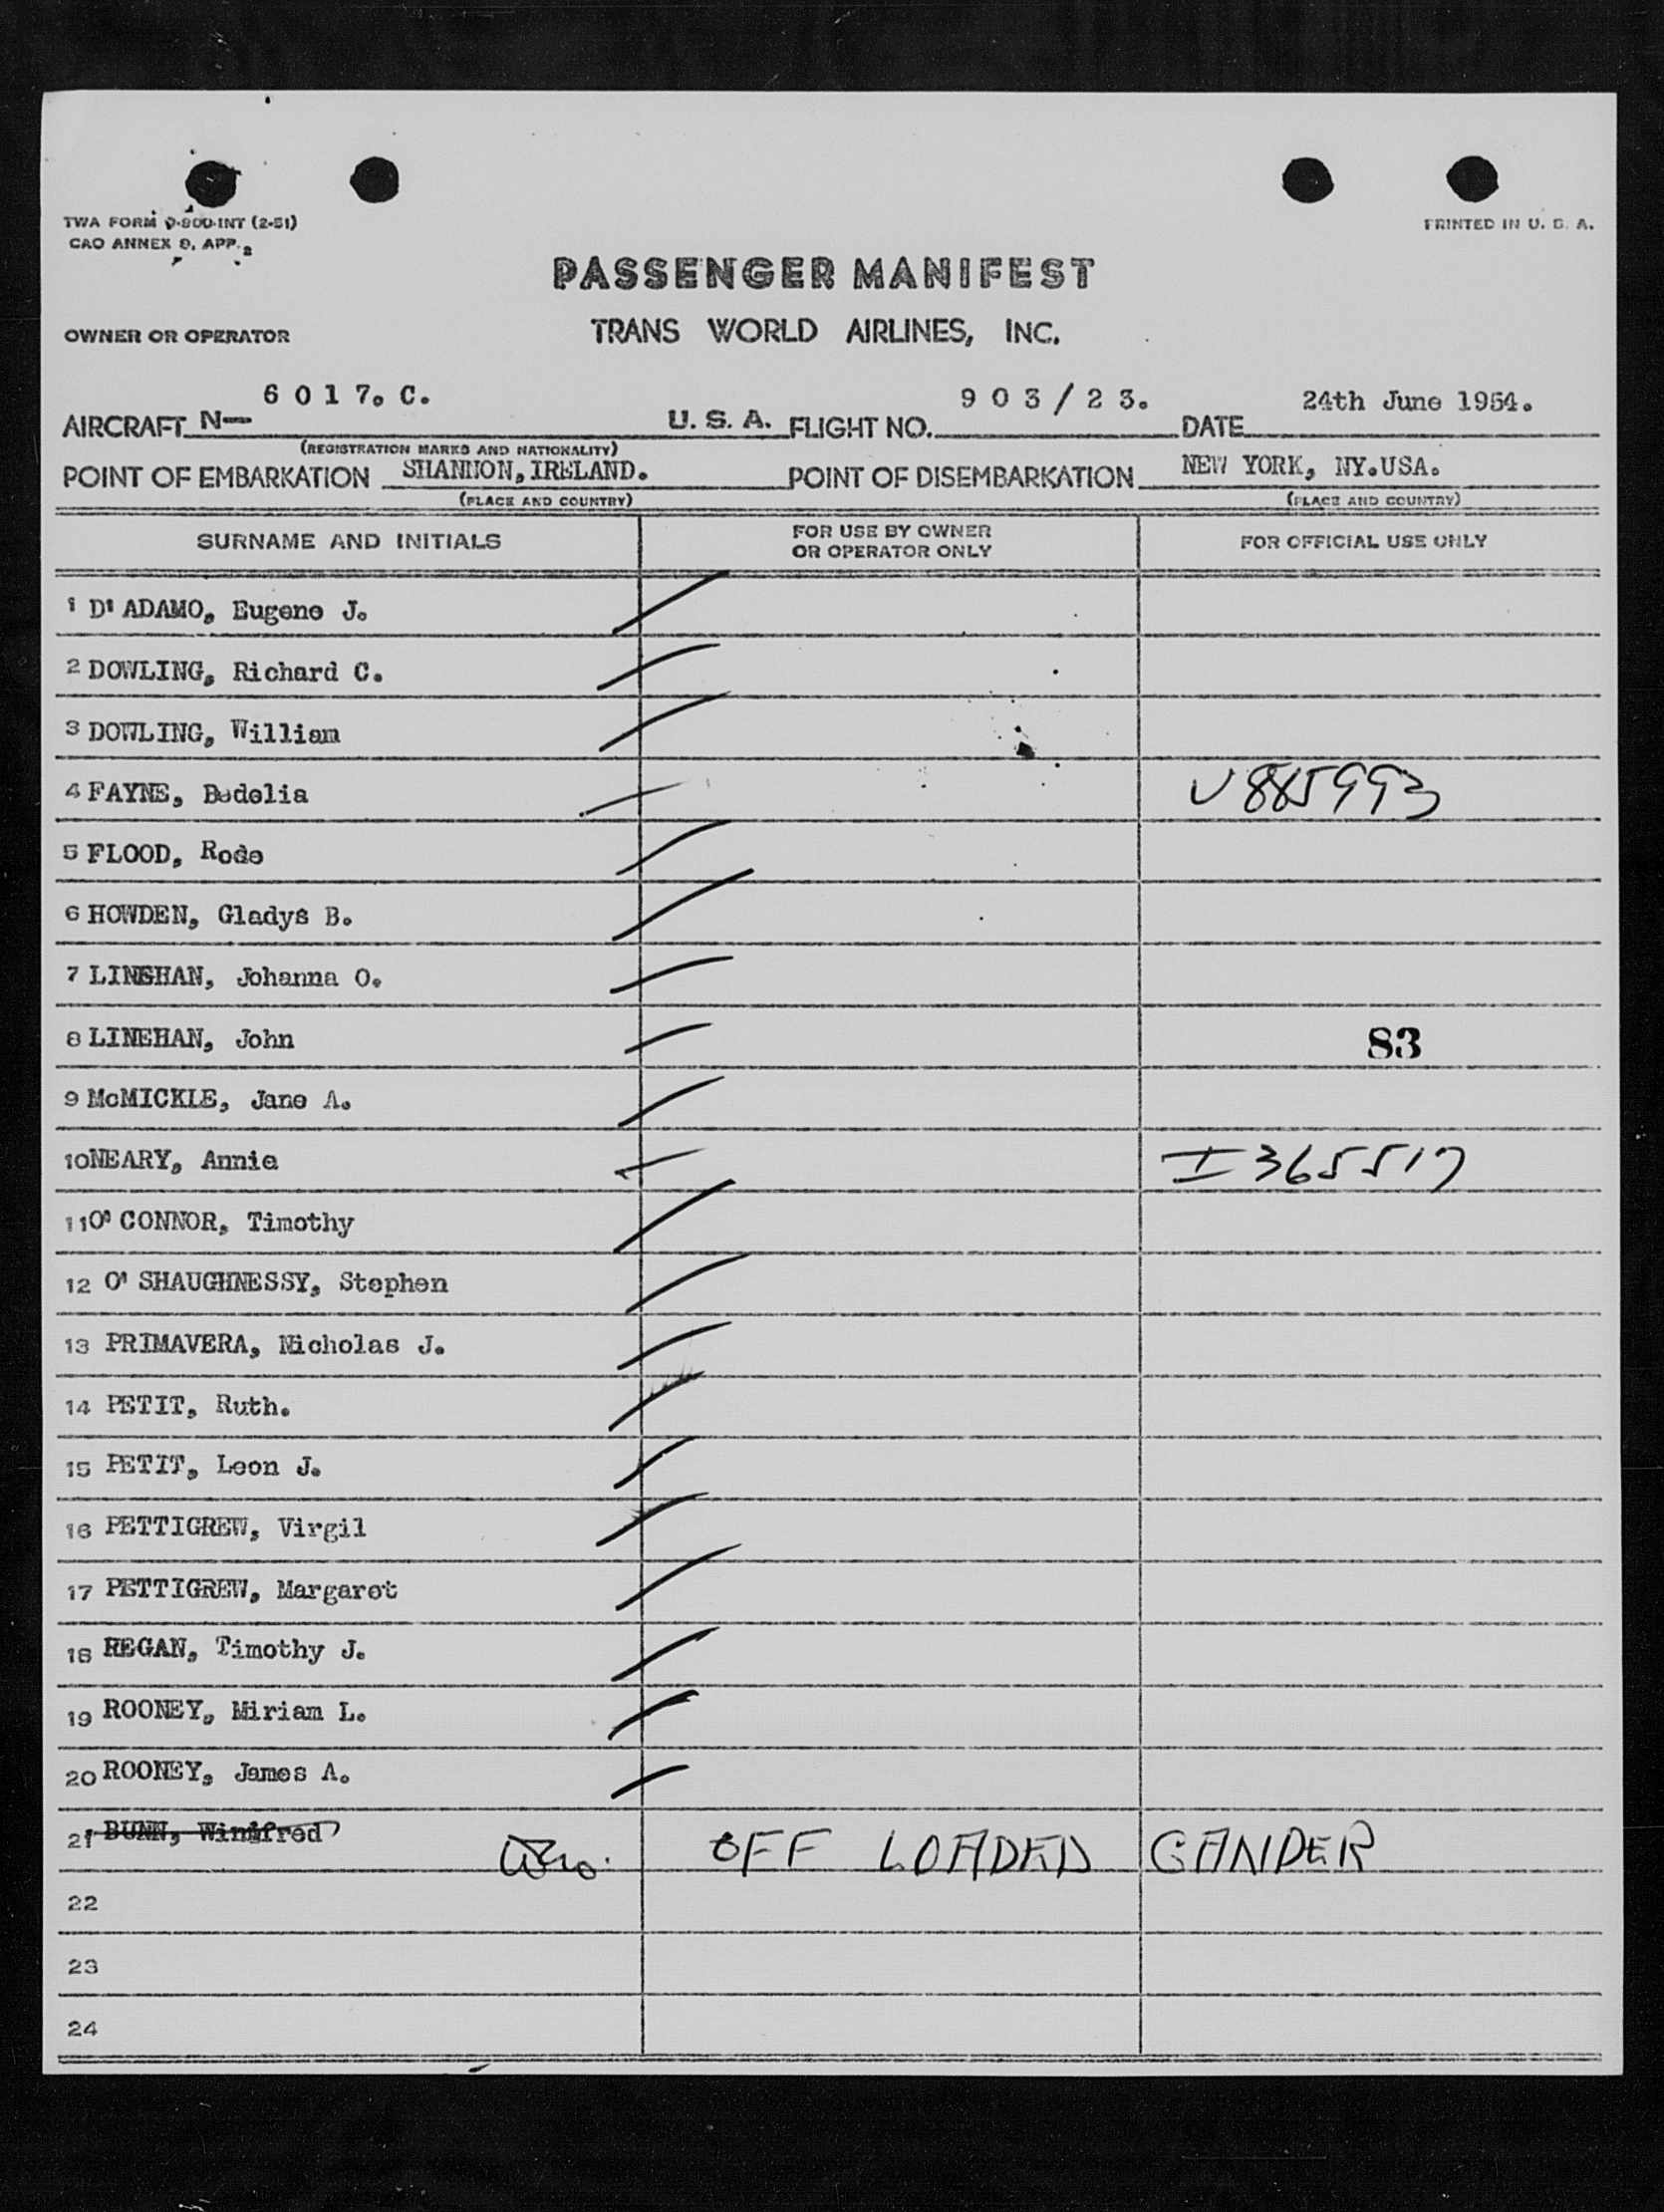 TWA FORM 9-800-INT (2-51)
CAO ANNEX 9, APP. 2
PRINTED IN U. S. A.
PASSENGER MANIFEST
OWNER OR OPERATOR TRANS WORLD AIRLINES, INC.
AIRCRAFT N— 6 0 1 7. C. U. S. A. FLIGHT NO. 9 0 3 / 2 3. DATE 24th June 1954.
(REGISTRATION MARKS AND NATIONALITY)
POINT OF EMBARKATION SHANNON, IRELAND. POINT OF DISEMBARKATION NEW YORK, NY.USA.
(PLACE AND COUNTRY) (PLACE AND COUNTRY)
SURNAME AND INITIALS FOR USE BY OWNER OR OPERATOR ONLY FOR OFFICIAL USE ONLY
1 D' ADAMO, Eugene J.
2 DOWLING, Richard C.
3 DOWLING, William
4 FAYNE, Bedelia V885993
5 FLOOD, Rode
6 HOWDEN, Gladys B.
7 LINEHAN, Johanna O.
8 LINEHAN, John 83
9 McMICKLE, Jane A.
10 NEARY, Annie I365517
11 O' CONNOR, Timothy
12 O' SHAUGHNESSY, Stephen
13 PRIMAVERA, Nicholas J.
14 PETIT, Ruth.
15 PETIT, Leon J.
16 PETTIGREW, Virgil
17 PETTIGREW, Margaret
18 REGAN, Timothy J.
19 ROONEY, Miriam L.
20 ROONEY, James A.
21 BUNN, Winifred OFF LOADED GANDER
22
23
24